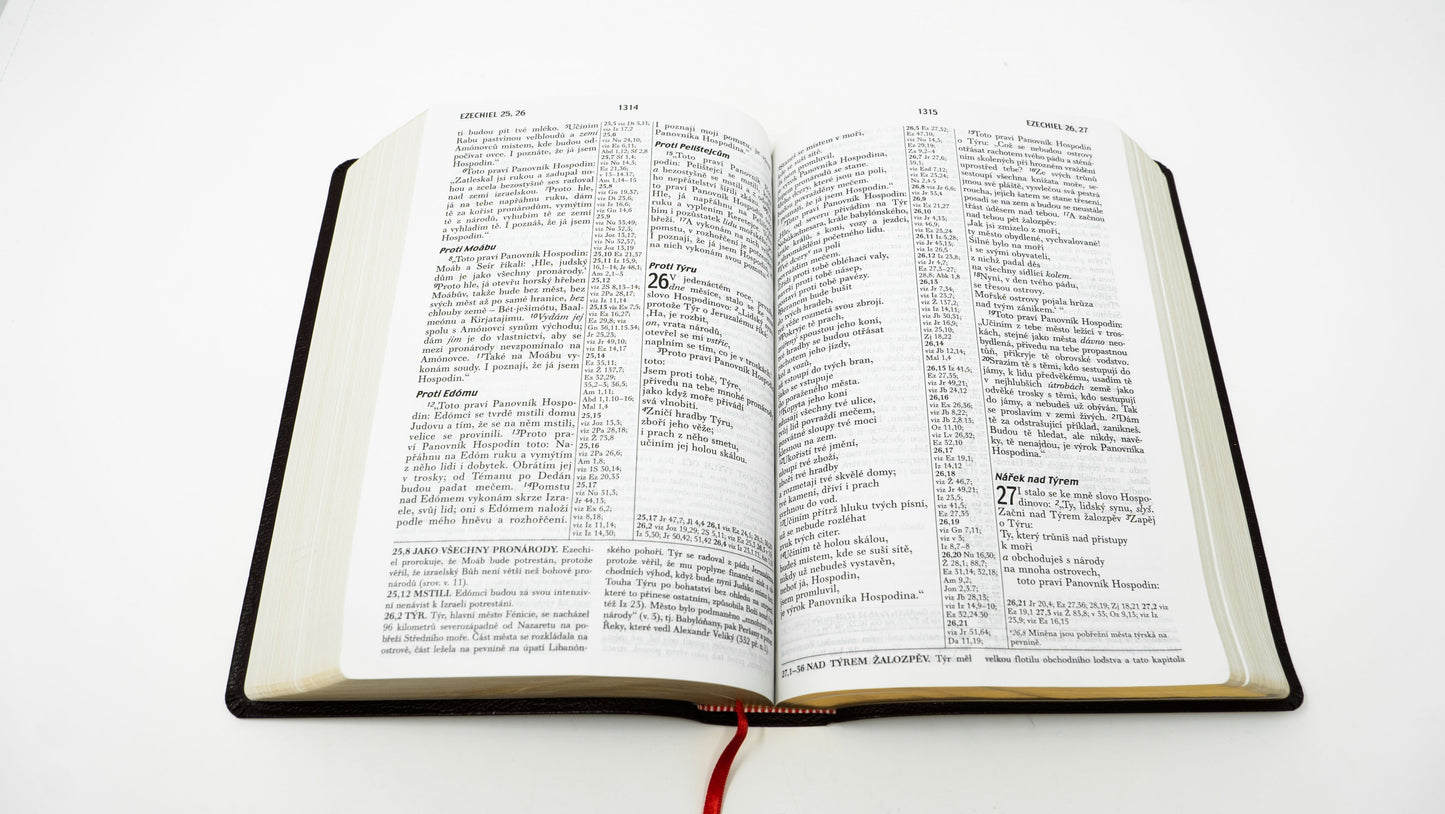 EZECHIEL 25, 26
1314
ti budou pít tvé mléko. ⁵Učiním
Rabu pastvinou velbloudů a zemi
Amónovců místem, kde budou od-
počívat ovce. I poznáte, že já jsem
Hospodin.“
⁶Toto praví Panovník Hospodin:
„Zatleskal jsi rukou a zadupal no-
hou a zcela bezostyšně ses radoval
nad zemí izraelskou. ⁷Proto hle,
já na tebe napřáhnu ruku, dám
tě za kořist pronárodům, vymýtím
tě z národů, vyhubím tě ze zemí
a vyhladím tě. I poznáš, že já jsem
Hospodin.“
Proti Moábu
⁸„Toto praví Panovník Hospodin:
Moáb a Seír říkali: ‚Hle, judský
dům je jako všechny pronárody.‘
⁹Proto hle, já otevřu horský hřeben
Moábův, takže bude bez měst, bez
svých měst až po samé hranice, bez
chlouby země – Bét-ješímótu, Baal-
meónu a Kirjatajimu. ¹⁰Vydám jej
spolu s Amónovci synům východu;
dám jim je do vlastnictví, aby se
mezi pronárody nevzpomínalo na
Amónovce. ¹¹Také na Moábu vy-
konám soudy. I poznají, že já jsem
Hospodin.“
Proti Edómu
¹²„Toto praví Panovník Hospo-
din: Edómci se tvrdě mstili domu
Judovu a tím, že se na něm mstili,
velice se provinili. ¹³Proto pra-
ví Panovník Hospodin toto: Na-
přáhnu na Edóm ruku a vymýtím
z něho lidi i dobytek. Obrátím jej
v trosky; od Témanu po Dedán
budou padat mečem. ¹⁴Pomstu
nad Edómem vykonám skrze Izra-
ele, svůj lid; oni s Edómem naloží
podle mého hněvu a rozhořčení.
25,5 viz Dt 3,11;
viz Iz 17,2
25,6
viz Nu 24,10;
viz Ez 6,11;
Abd 1,12; Sf 2,8
25,7 Sf 1,4;
viz Nu 14,5;
Ez 21,36;
v 13–14.17;
Am 1,14–15
25,8
viz Gn 19,37;
viz Dt 23,6;
viz Iz 16,6;
viz Gn 14,6
25,9
viz Nu 33,49;
viz Nu 32,3;
viz Joz 13,17;
viz Nu 32,37;
viz Joz 13,19
25,10 Ez 21,37
25,11 Iz 15,9;
16,1–14; Jr 48,1;
Am 2,1–3
25,12
viz 2S 8,13–14;
viz 2Pa 28,17;
viz Iz 11,14
25,13 viz Ex 7,5;
viz Ez 16,27;
Ez 29,8; viz
Gn 36,11.15.34;
Jr 25,23;
viz Jr 49,10;
viz Ez 14,17
25,14
Ez 35,11;
viz Ž 137,7;
Ez 32,29;
35,2–3; 36,5;
Am 1,11;
Abd 1,1.10–16;
Mal 1,4
25,15
viz Joz 13,3;
viz 2Pa 28,18;
viz Ž 75,8
25,16
viz 2Pa 26,6;
Am 1,8;
viz 1S 30,14;
viz Ez 20,33
25,17
viz Nu 31,3;
Jr 44,15;
viz Ex 6,2;
viz 8,18;
viz Iz 11,14;
viz Iz 14,30;
I poznají moji pomstu, je
Panovníka Hospodina.“
Proti Pelištejcům
¹⁵„Toto praví Panovník
podin: Pelištejci se mstili
a bezostyšně se mstili
nepřátelství šířili zkázu
to praví Panovník Hospodin
ruku a vyplením Keretejce
bím i pozůstatek lidu mořského
břeží. ¹⁷A vykonám na nich
pomstu, v rozhořčení je potrestám
I poznají, že já jsem Hospodin
na nich vykonám svou pomstu.
Proti Týru
26 V jedenáctém roce, první
dne měsíce, stalo se ke
slovo Hospodinovo: ²„Lidský
protože Týr o Jeruzalému říká:
‚Ha, je rozbit,
on, vrata národů,
otevřel se mi vstříc,
naplním se tím, co je v troskách‘
³Proto praví Panovník Hospodin
toto:
Jsem proti tobě, Týre,
přivedu na tebe mnohé pronárody
jako když moře přivádí
svá vlnobití.
⁴Zničí hradby Týru,
zboří jeho věže;
i prach z něho smetu,
učiním jej holou skálou.
25,17 Jr 47,7; Jl 4,4 26,1 viz Ez 24,1;
26,2 viz Joz 19,29; 2S 5,11; viz Ez 25,3;
Iz 5,30; Jr 50,42; 51,42 26,4 viz Iz 23,11;
25,8 JAKO VŠECHNY PRONÁRODY. Ezechi-
el prorokuje, že Moáb bude potrestán, protože
věřil, že izraelský Bůh není větší než bohové pro-
národů (srov. v. 11).
25,12 MSTILI. Edómci budou za svou intenziv-
ní nenávist k Izraeli potrestáni.
26,2 TÝR. Týr, hlavní město Fénicie, se nacházel
96 kilometrů severozápadně od Nazaretu na po-
břeží Středního moře. Část města se rozkládala na
ostrově, část ležela na pevnině na úpatí Libanón-
ského pohoří. Týr se radoval z pádu Jeruzaléma,
protože věřil, že mu poplyne finanční zisk z
chodních výhod, když bude nyní Judsko mimo
Touha Týru po bohatství bez ohledu na utrpení,
které to přinese ostatním, způsobila Boží soud
též Iz 23). Město bylo podmaněno „mnohými pro-
národy“ (v. 3), tj. Babylóňany, pak Peršany a posléze
Řeky, které vedl Alexandr Veliký (332 př. n. l.)
1315
EZECHIEL 26, 27
Stane se místem v moři,
suší sítě.
promluvil,
Panovníka Hospodina,
pronárodů se stane.
dcery, které jsou na poli,
povražděny mečem.
poznají, že já jsem Hospodin.“
od severu přivádím na Týr
Nebúkadnesara, krále babylónského,
krále králů, s koni, vozy a jezdci,
shromáždění početného lidu.
dcery na poli
povraždí mečem.
proti tobě obléhací valy,
proti tobě násep,
staví proti tobě pavézy.
Beranem bude bušit
do tvých hradeb,
věže rozmetá svou zbrojí.
Pokryje tě prach,
spoustou jeho koní,
tvé hradby se budou otřásat
rachotem jeho jízdy,
kol a vozů,
až vstoupí do tvých bran,
jako se vstupuje
do poraženého města.
¹¹Kopyta jeho koní
zdupají všechny tvé ulice,
tvůj lid povraždí mečem,
posvátné sloupy tvé moci
klesnou na zem.
¹²Ukořistí tvé jmění,
uloupí tvé zboží,
zboří tvé hradby
a rozmetají tvé skvělé domy;
tvé kamení, dříví i prach
svrhnou do vod.
¹³Učiním přítrž hluku tvých písní,
už se nebude rozléhat
zvuk tvých citer.
¹⁴Učiním tě holou skálou,
budeš místem, kde se suší sítě,
nikdy už nebudeš vystavěn,
neboť já, Hospodin,
jsem promluvil,
je výrok Panovníka Hospodina.“
26,5 Ez 27,32;
Ez 47,10;
viz Nu 14,3;
Ez 29,19;
Za 9,2–4
26,7 Jr 27,6;
39,1;
viz Ezd 7,12;
viz Ez 23,24;
Na 2,4.5
26,8 viz Jr 6,6;
viz Jr 33,4
26,9
viz Ez 21,27
26,10
viz Jr 4,13;
viz 46,9;
viz Ez 23,24
26,11 Iz 5,28;
viz Jr 43,13;
viz Iz 26,5
26,12 Iz 23,8;
viz Jr 4,7;
Ez 27,3–27;
28,8; Abk 1,8
26,13
viz Jr 7,34;
viz Iz 23,7;
viz Ž 137,2;
viz Iz 14,11;
viz Jb 30,31;
viz Jr 16,9;
viz 25,10;
Zj 18,22
26,14
viz Jb 12,14;
Mal 1,4
26,15 Iz 41,5;
Ez 27,35;
viz Jr 49,21;
viz Jb 24,12
26,16
viz Ex 26,36;
viz Jb 8,22;
viz Jb 2,8.13;
Oz 11,10;
viz Lv 26,32;
Ez 32,10
26,17
viz Ez 19,1;
Iz 14,12
26,18
viz Ž 46,7;
viz Jr 49,21;
Iz 23,5;
viz 41,5;
Ez 27,35
26,19
viz Gn 7,11;
viz v 3;
Iz 8,7–8
26,20 Nu 16,30;
Ž 28,1; 88,7;
Ez 31,14; 32,18;
Am 9,2;
Jon 2,3.7;
viz Jb 28,13;
viz Iz 14,9–10;
Ez 32,24.30
26,21
viz Jr 51,64;
Da 11,19;
¹⁵Toto praví Panovník Hospodin
o Týru: „Což se nebudou ostrovy
otřásat rachotem tvého pádu a sténá-
ním skolených při hrozném vraždění
uprostřed tebe? ¹⁶Ze svých trůnů
sestoupí všechna knížata moře, se-
jmou své pláště, vysvlečou svá pestrá
roucha, jejich šatem se stane třesení,
posadí se na zem a budou se neustále
třást úděsem nad tebou. ¹⁷A začnou
nad tebou pět žalozpěv:
‚Jak jsi zmizelo z moří,
ty město obydlené, vychvalované!
Silné bylo na moři
i se svými obyvateli,
z nichž padal děs
na všechny sídlící kolem.
¹⁸Nyní, v den tvého pádu,
se třesou ostrovy.
Mořské ostrovy pojala hrůza
nad tvým zánikem.‘ “
¹⁹Toto praví Panovník Hospodin:
„Učiním z tebe město ležící v tros-
kách, stejné jako města dávno neo-
bydlená, přivedu na tebe propastnou
tůň, přikryje tě obrovské vodstvo.
²⁰Srazím tě s těmi, kdo sestupují do
jámy, k lidu předvěkému, usadím tě
v nejhlubších útrobách země jako
odvěké trosky s těmi, kdo sestupují
do jámy, a nebudeš už obýván. Tak
se proslavím v zemi živých. ²¹Dám
tě za odstrašující příklad, zanikneš.
Budou tě hledat, ale nikdy, návě-
ky, tě nenajdou, je výrok Panovníka
Hospodina.“
Nářek nad Týrem
27 I stalo se ke mně slovo Hospo-
dinovo: ²„Ty, lidský synu, slyš.
Začni nad Týrem žalozpěv ³Zapěj
o Týru:
Ty, který trůníš nad přístupy
k moři
a obchoduješ s národy
na mnoha ostrovech,
toto praví Panovník Hospodin:
26,21 Jr 20,4; Ez 27,36; 28,19; Zj 18,21 27,2 viz
Ez 19,1 27,3 viz Ž 83,8; v 33; Oz 9,13; viz Iz
23,9; viz Ez 16,15
ᵃ26,8 Míněna jsou pobřežní města týrská na
pevnině.
27,1–36 NAD TÝREM ŽALOZPĚV. Týr měl
velkou flotilu obchodního loďstva a tato kapitola